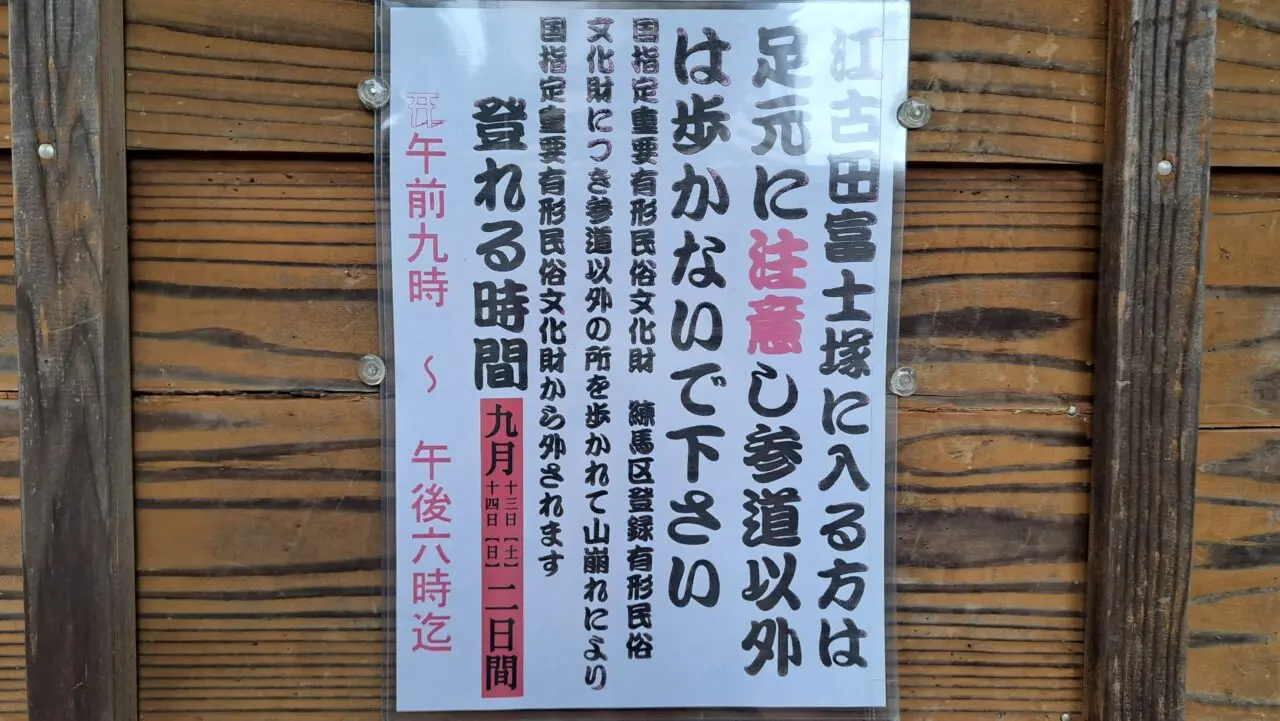 江古田富士塚に入る方は
足元に注意し参道以外
は歩かないで下さい
国指定重要有形民俗文化財 練馬区登録有形民俗
文化財につき参道以外の所を歩かれて山崩れにより
国指定重要有形民俗文化財から外されます
登れる時間 九月十三日【土】十四日【日】二日間
午前九時 〜 午後六時迄